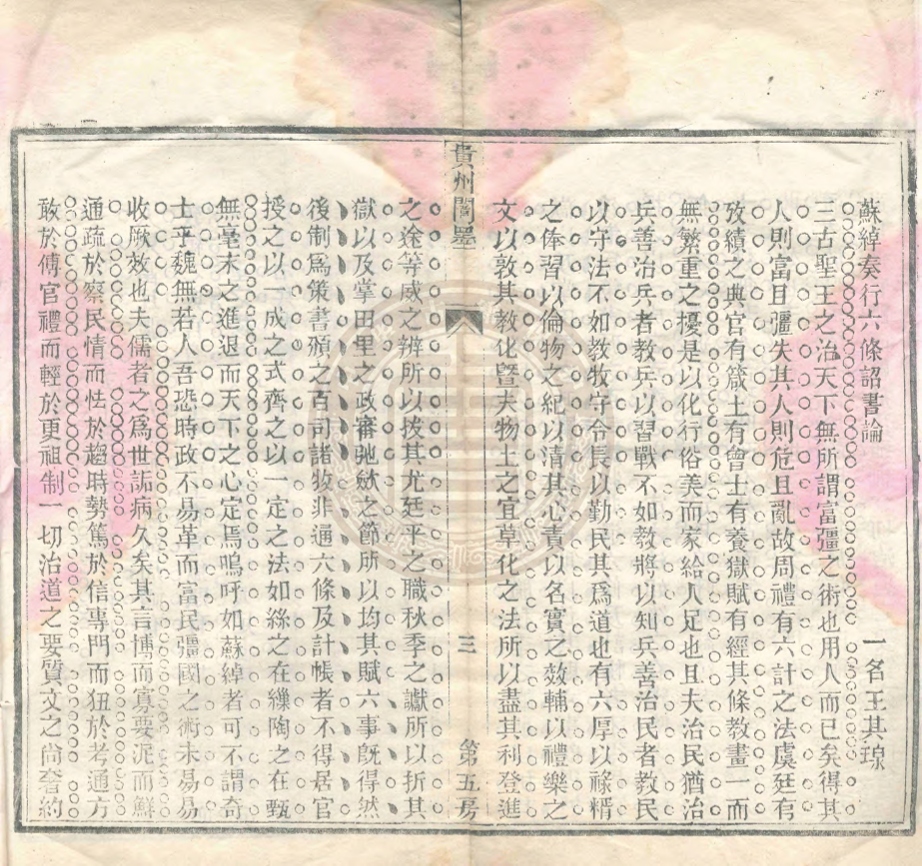 蘇綽奏行六條詔書論
一名王其琼
三古聖王之治天下無所謂富彊之術也用人而已矣得其
人則富且彊失其人則危且亂故周禮有六計之法虞廷有
攷績之典官有箴土有會士有養獄賦有經其條教畫一而
無繁重之擾是以化行俗美而家給人足也且夫治民猶治
兵善治兵者教兵以習戰不如教將以知兵善治民者教民
以守法不如教牧守令長以勤民其爲道也有六厚以祿糈
之俸習以倫物之紀以清其心責以名實之效輔以禮樂之
文以敦其教化曁夫物土之宜草化之法所以盡其利登進
貴州闈墨
三
第五房
之途等威之辨所以拔其尤廷平之職秋季之讞所以折其
獄以及掌田里之政審弛斂之節所以均其賦六事旣得然
後制爲策書頒之百司諸牧非通六條及計帳者不得居官
授之以一成之式齊之以一定之法如絲之在繅陶之在甄
無毫末之進退而天下之心定焉嗚呼如蘇綽者可不謂奇
士乎魏無若人吾恐時政不易革而富民彊國之術未易易
收厥效也夫儒者之爲世詬病久矣其言博而寡要泥而鮮
通疏於察民情而怯於趨時勢篤於信專門而狃於考通方
敢於傅官禮而輕於更祖制一切治道之要質文之尙奢約